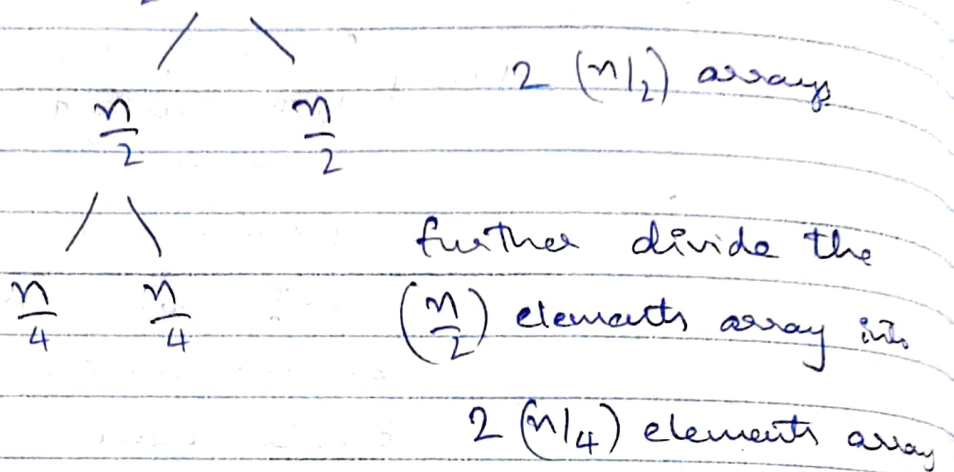 2 (n/2) arrays
n/2 n/2
further divide the
n/4 n/4 (n/2) elements array into
2 (n/4) elements array